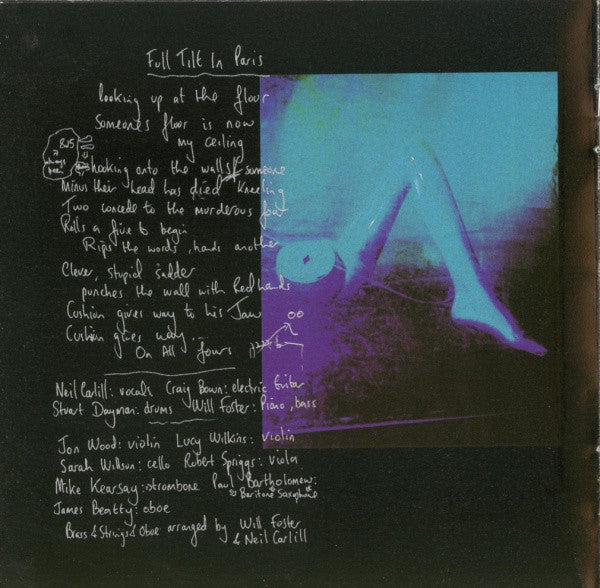 Full Tilt In Paris
looking up at the floor
Someone's floor is now
my ceiling
hooking onto the walls, someone
Minus their head has died kneeling
Two concede to the murderous four
Rolls a five to begin
Rips the words, hands another
Clever, stupid sadder
punches the wall with Red hands
Cushion gives way to his Jaw
Cushion gives way...
On All fours
Neil Carlill: vocals Craig Bown: electric Guitar
Stuart Dayman: drums Will Foster: Piano, bass
Jon Wood: violin Lucy Wilkins: violin
Sarah Willson: cello Robert Spriggs: viola
Mike Kearsay: trombone Paul Bartholomew:
Baritone Saxophone
James Beatty: oboe
Brass & Strings & Oboe arranged by Will Foster
& Neil Carlill